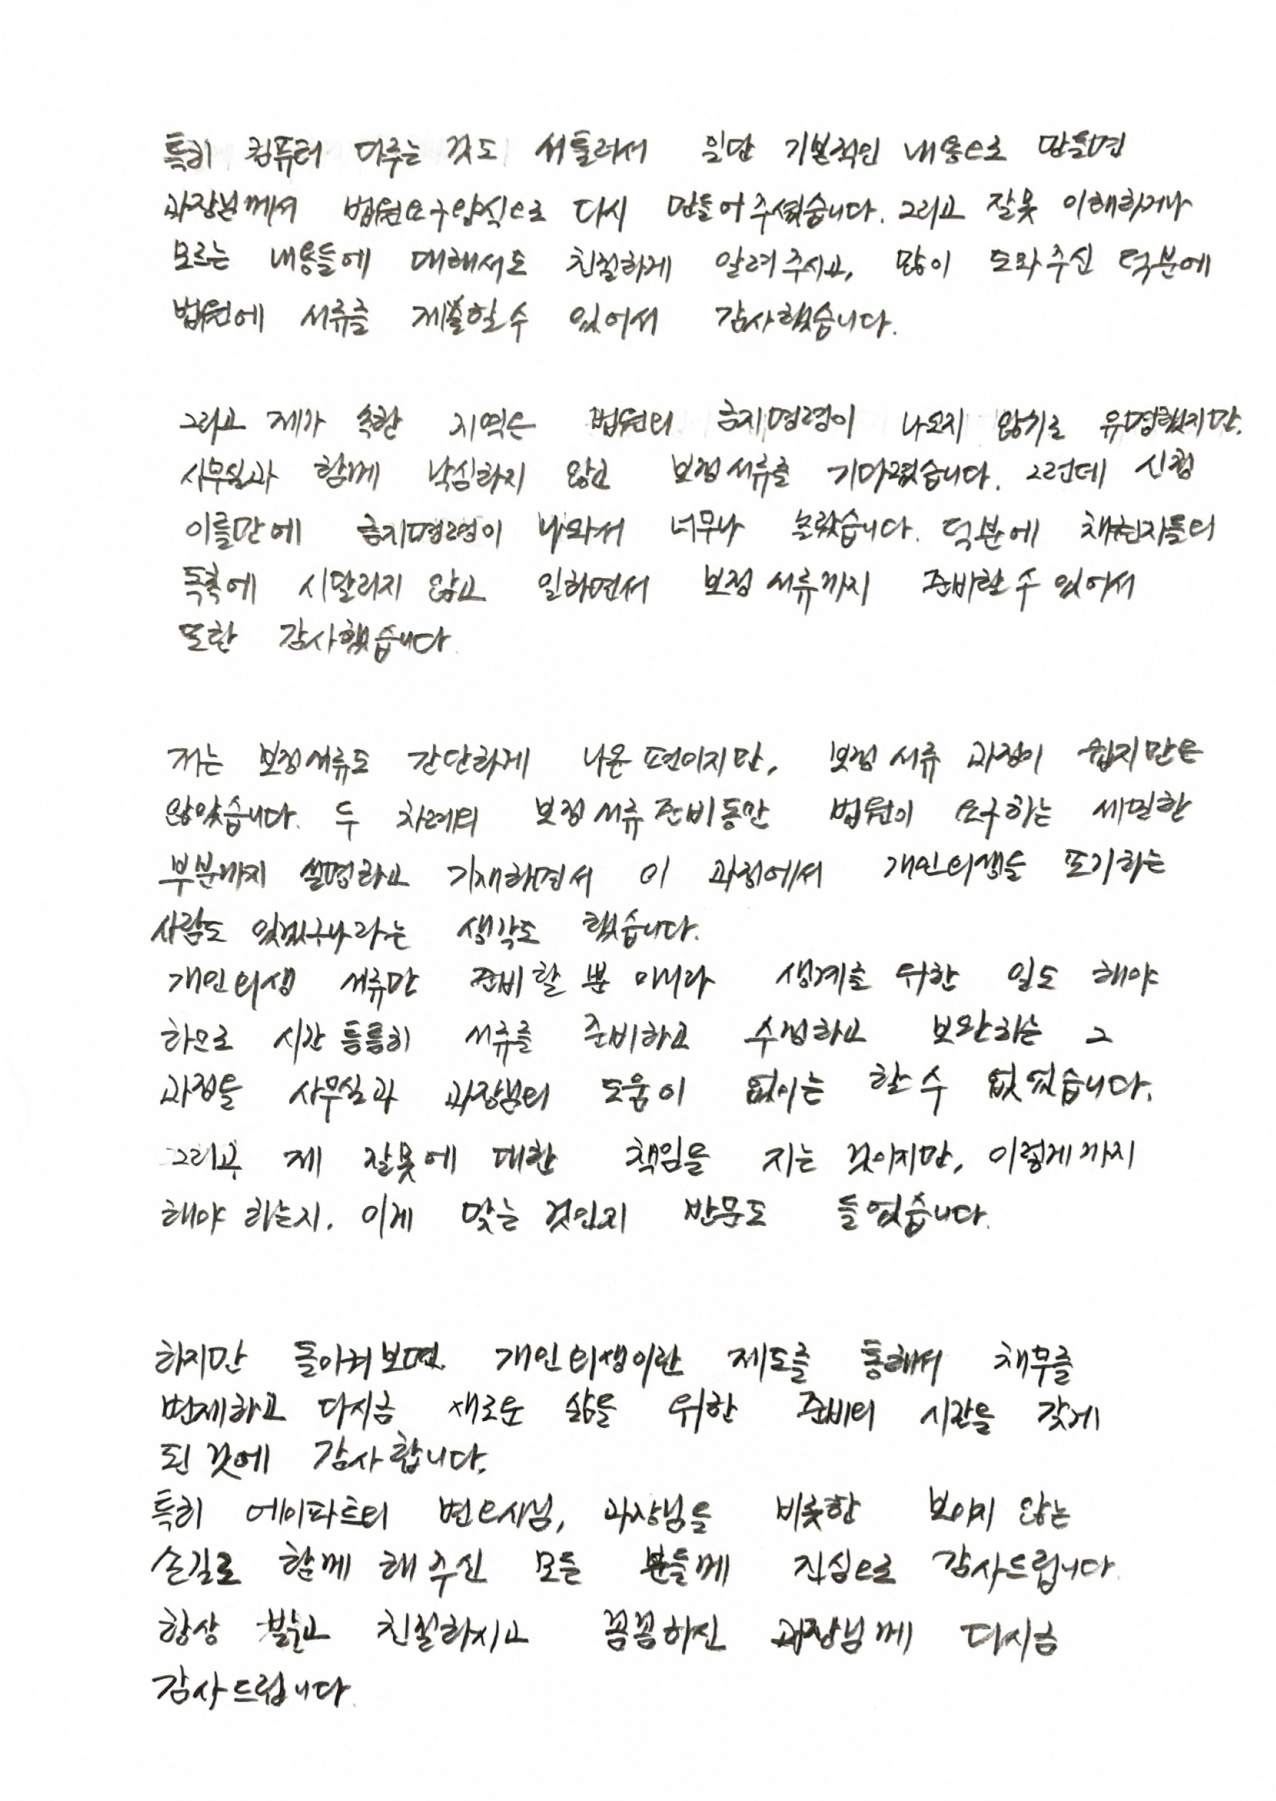 특히 컴퓨터 다루는 것도 서툴러서 일단 기본적인 내용으로 만들면
과장님께서 법원요구양식으로 다시 만들어 주셨습니다. 그리고 잘못 이해하거나
모르는 내용들에 대해서도 친절하게 알려주시고, 많이 도와주신 덕분에
법원에 서류를 제출할 수 있어서 감사했습니다.
그리고 제가 속한 지역은 법원의 금지명령이 나오지 않기로 유명했지만,
사무실과 함께 낙심하지 않고 보정서류를 기다렸습니다. 그런데 신청
이틀만에 금지명령이 나와서 너무나 놀랐습니다. 덕분에 채권자들의
독촉에 시달리지 않고 일하면서 보정 서류까지 준비할 수 있어서
또한 감사했습니다.
저는 보정서류도 간단하게 나온 편이지만, 보정 서류 과정이 쉽지만은
않았습니다. 두 차례의 보정 서류 준비동안 법원이 요구하는 세밀한
부분까지 설명하고 기재하면서 이 과정에서 개인회생을 포기하는
사람도 있겠구나라는 생각도 했습니다.
개인회생 서류만 준비할 뿐 아니라 생계를 위한 일도 해야
하므로 시간 틈틈히 서류를 준비하고 수정하고 보완하는 그
과정을 사무실과 과장님의 도움이 없이는 할 수 없었습니다.
그리고 제 잘못에 대한 책임을 지는 것이지만, 이렇게까지
해야 하는지. 이게 맞는 것인지 반문도 들었습니다.
하지만 돌아켜보면. 개인회생이란 제도를 통해서 채무를
변제하고 다시금 새로운 삶을 위한 준비의 시간을 갖게
된 것에 감사합니다.
특히 에이파트의 변호사님, 과장님을 비롯한 보이지 않는
손길로 함께 해 주신 모든 분들께 진심으로 감사드립니다.
항상 밝고 친절하시고 꼼꼼하신 과장님께 다시금
감사드립니다.